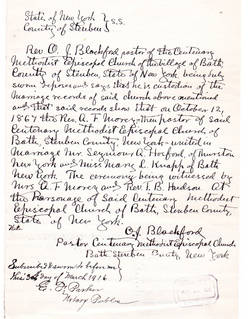 State of New York } S.S.
County of Steuben }
Rev O. J. Blackford pastor of the Centenary
Methodist Episcopal Church of the Village of Bath
County of Steuben, State of New York being duly
sworn deposes and says that he is custodian of the
marriage records of said church above mentioned
and that said records show that on October 12,
1867 the Rev A. F. Morey then pastor of said
Centenary Methodist Episcopal Church of
Bath, Steuben County, New York united in
Marriage Mrs Seymour A. Horford of
New York and Miss Mary L. Knapp of Bath
New York. The ceremony being witnessed by
Mrs A. F. Morey and Rev T. B. Hudson at
the Parsonage of Said Centenary Methodist
Episcopal Church of Bath, Steuben County,
State of New York.
O J Blackford
Pastor Centenary Methodist Episcopal Church
Bath Steuben County, New York
Subscribed & sworn to before me
this 3rd day of March 1916
Notary Public